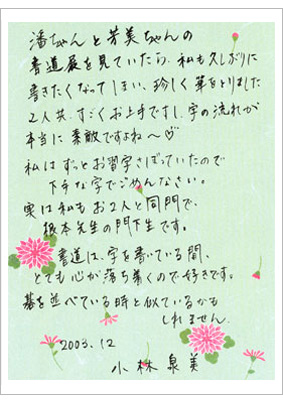 潘ちゃんと芳美ちゃんの
書道展を見ていたら、私も久しぶりに
書きたくなってしまい、珍しく筆をとりました
2人共、すごくお上手ですし、字の流れが
本当に素敵ですよね〜♡
私はずっとお習字さぼっていたので
下手な字でごめんなさい。
実は私もお2人と同門で、
根本先生の門下生です。
書道は、字を書いている間、
とても心が落ち着くので好きです。
碁を並べている時と似ているかも
しれません。
2003.12
小林泉美